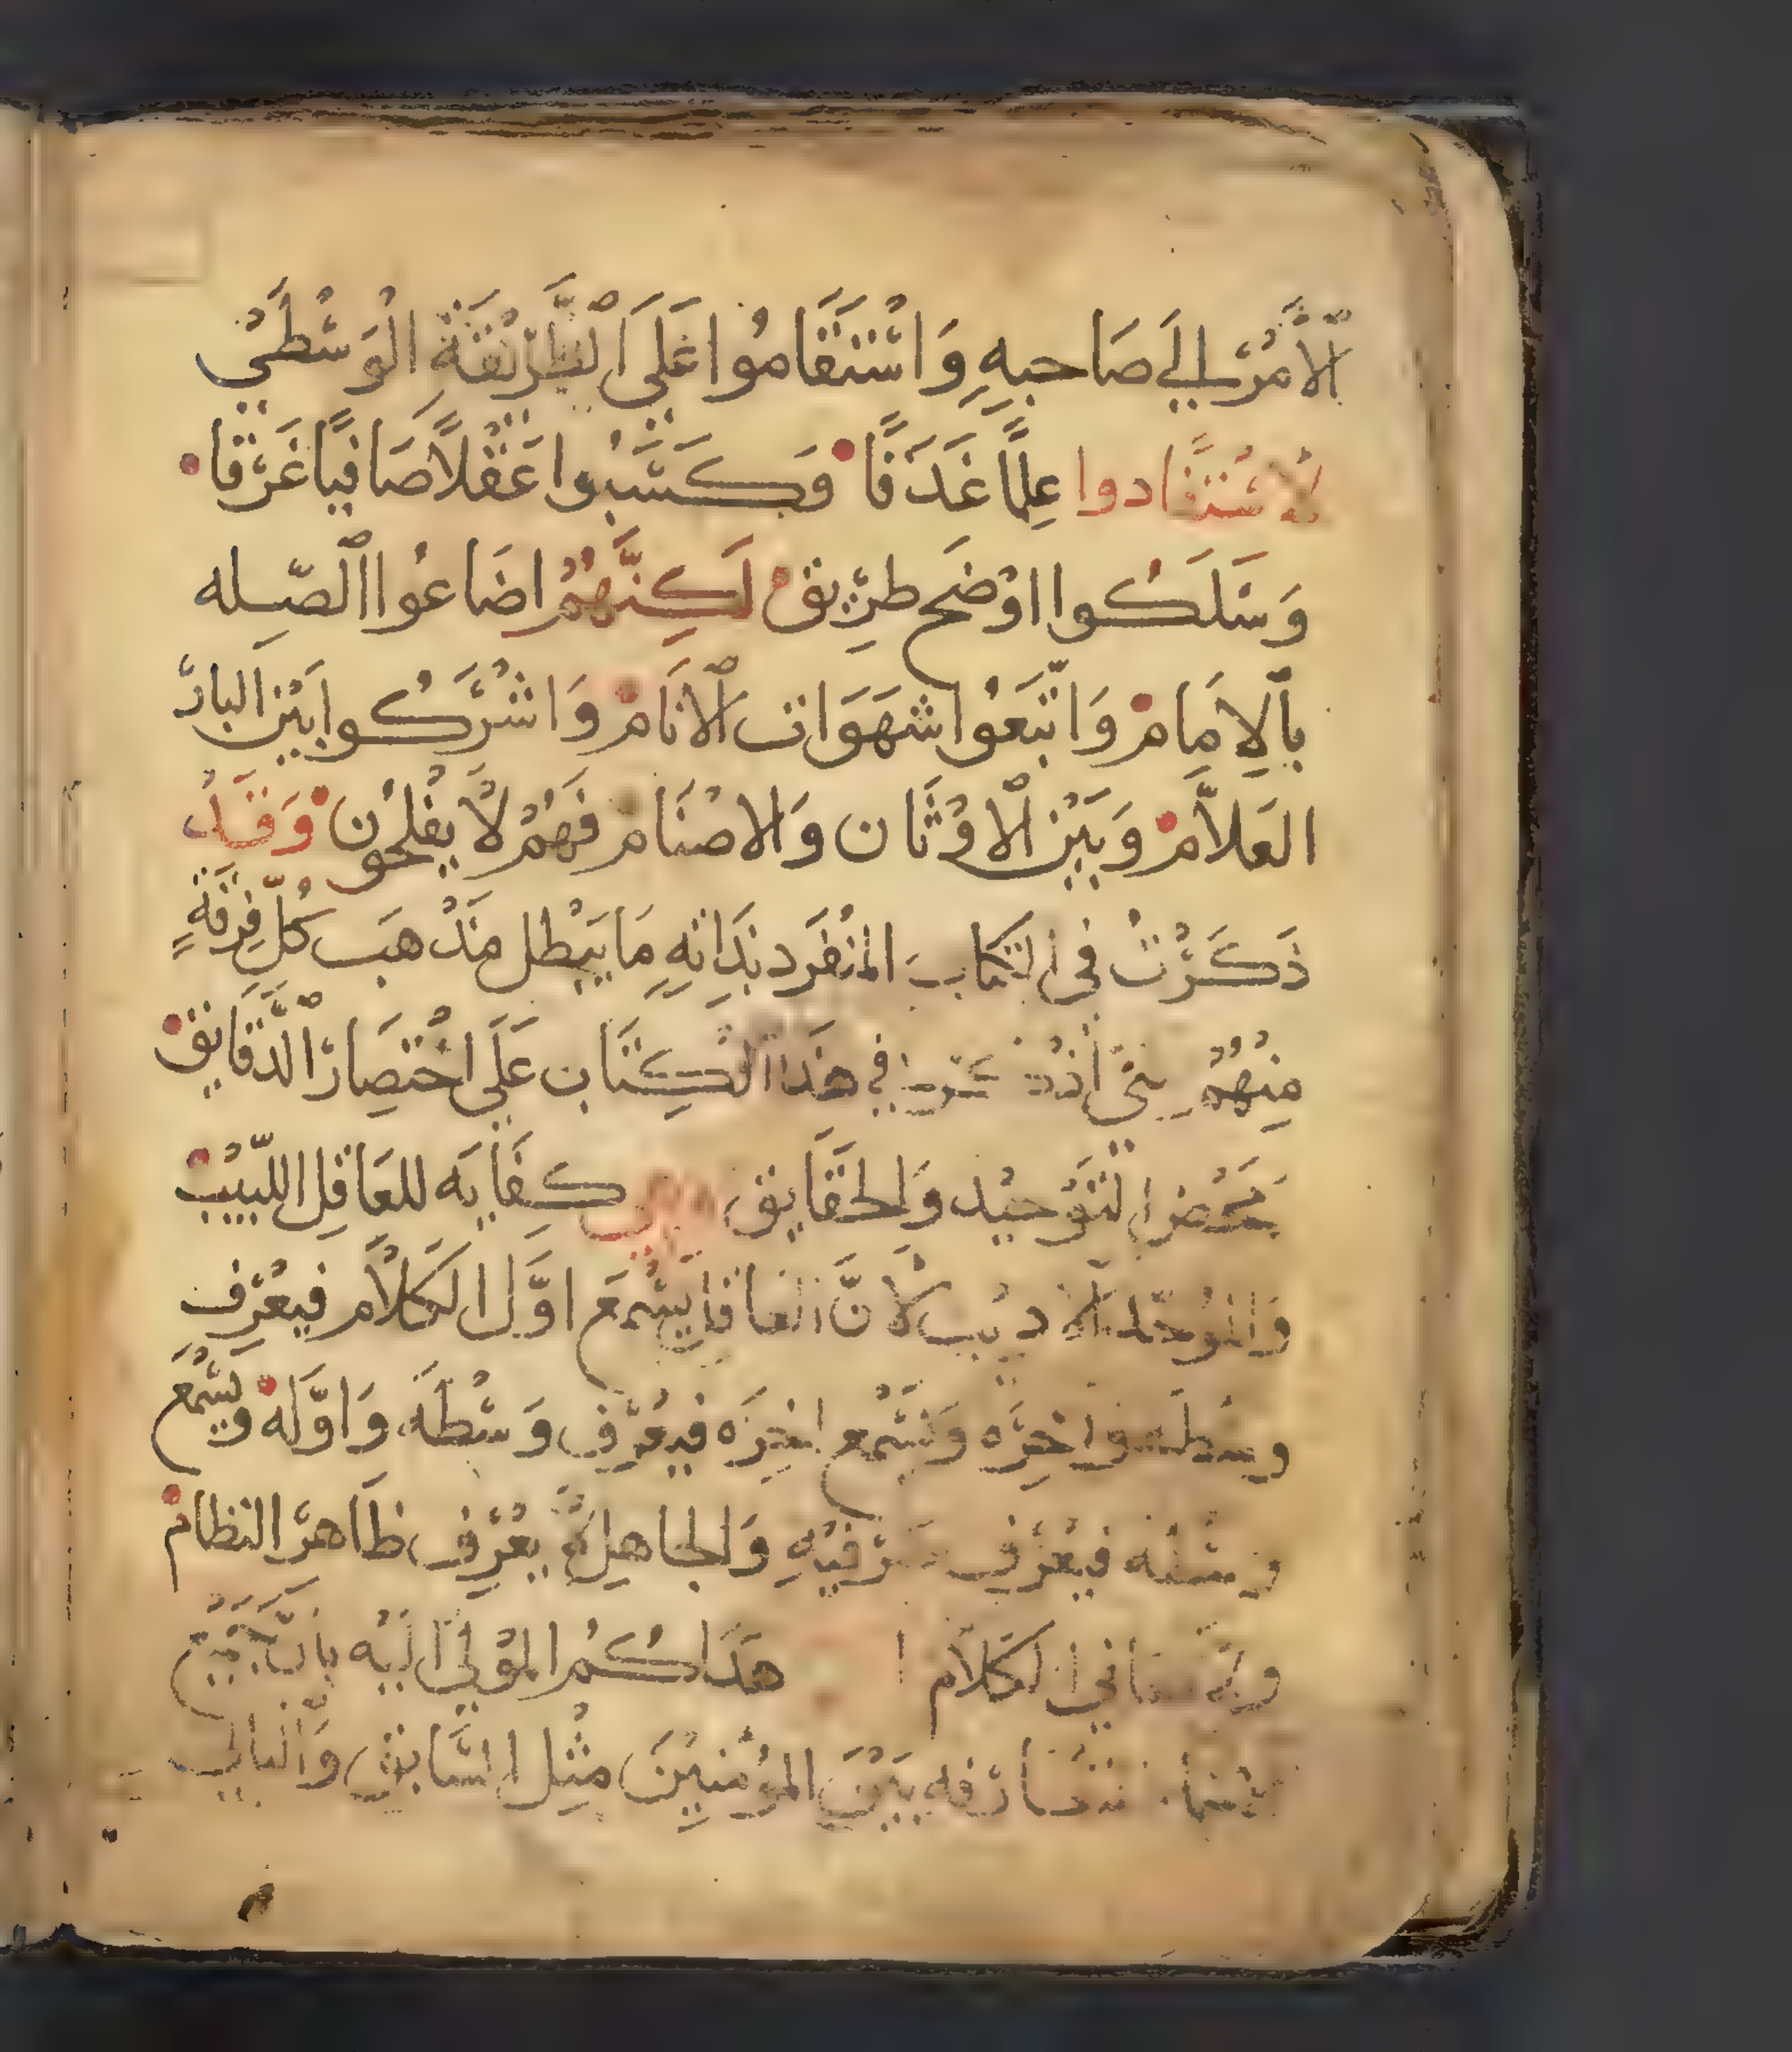 اَلْاَمْرَ اِلَي صَاحبهِ وَاسْتَقَامُوا عَلَى الطَّرْيقَةِ الْوَسْطَيْ
لَاسْتَفَادوا عِلمًا غَدَقًا فَكَسَبُوا عَقْلًا صَافيًا غَرْقا
وَسَلَكُوا اوْضَح طَرْيق لَكِنَّهُمْ اضَاعُوا الصّله
بالاِمَامْ وَاتّبَعُوا شَهَوَات الانَامْ وَاشْرَكُوا بَيْن البارّ
العَلاَّمْ وَبَيْن الاوْثَان وَالاصْنَام فَهُمْ لَا يفْلحُون وَقَدْ
ذَكَرْتُ في الكتَاب المنْفَرد بذَاتهِ مَا يبْطل مَذْهَب كُلّ فِرْقَةٍ
مِنْهُمْ في هَذَا الكِتَاب عَلَى اخْتِصَار الدَّقَايق
التَوْحيْد وَالحقَايق كِفَايَه للعَاقِل اللّبيْب
وَالموَحّد الاديب لَانَّ العاقل يَسْمَع اوَّل الكَلَام فيعْرِف
وسْطه واخِرَه وَيَسْمع اخِرَه فيعْرف وَسْطَه وَاوَّله وَيسْمَع
وسْطه فيعْرف طرفيْهِ وَالجاهِل يعْرِف ظَاهرَ النظامْ
الكَلَام هَذَاكُمُ الموْلَى اليْه بانَّ
بَيْنَ المؤْمنيْنَ مِثْل السَّابق وَالتالي